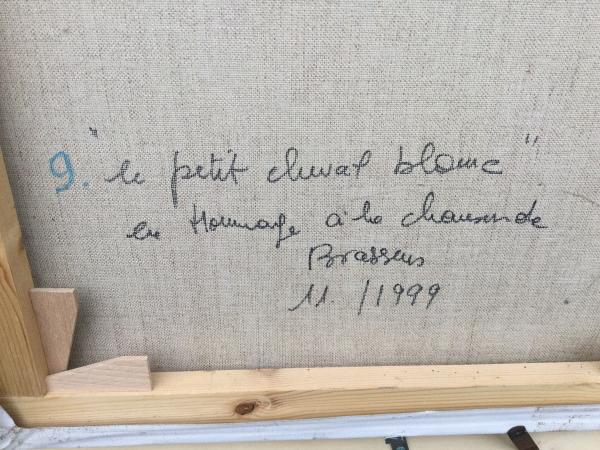 9. "le petit cheval blanc"
en Hommage à la chanson de
Brassens
11. /1999